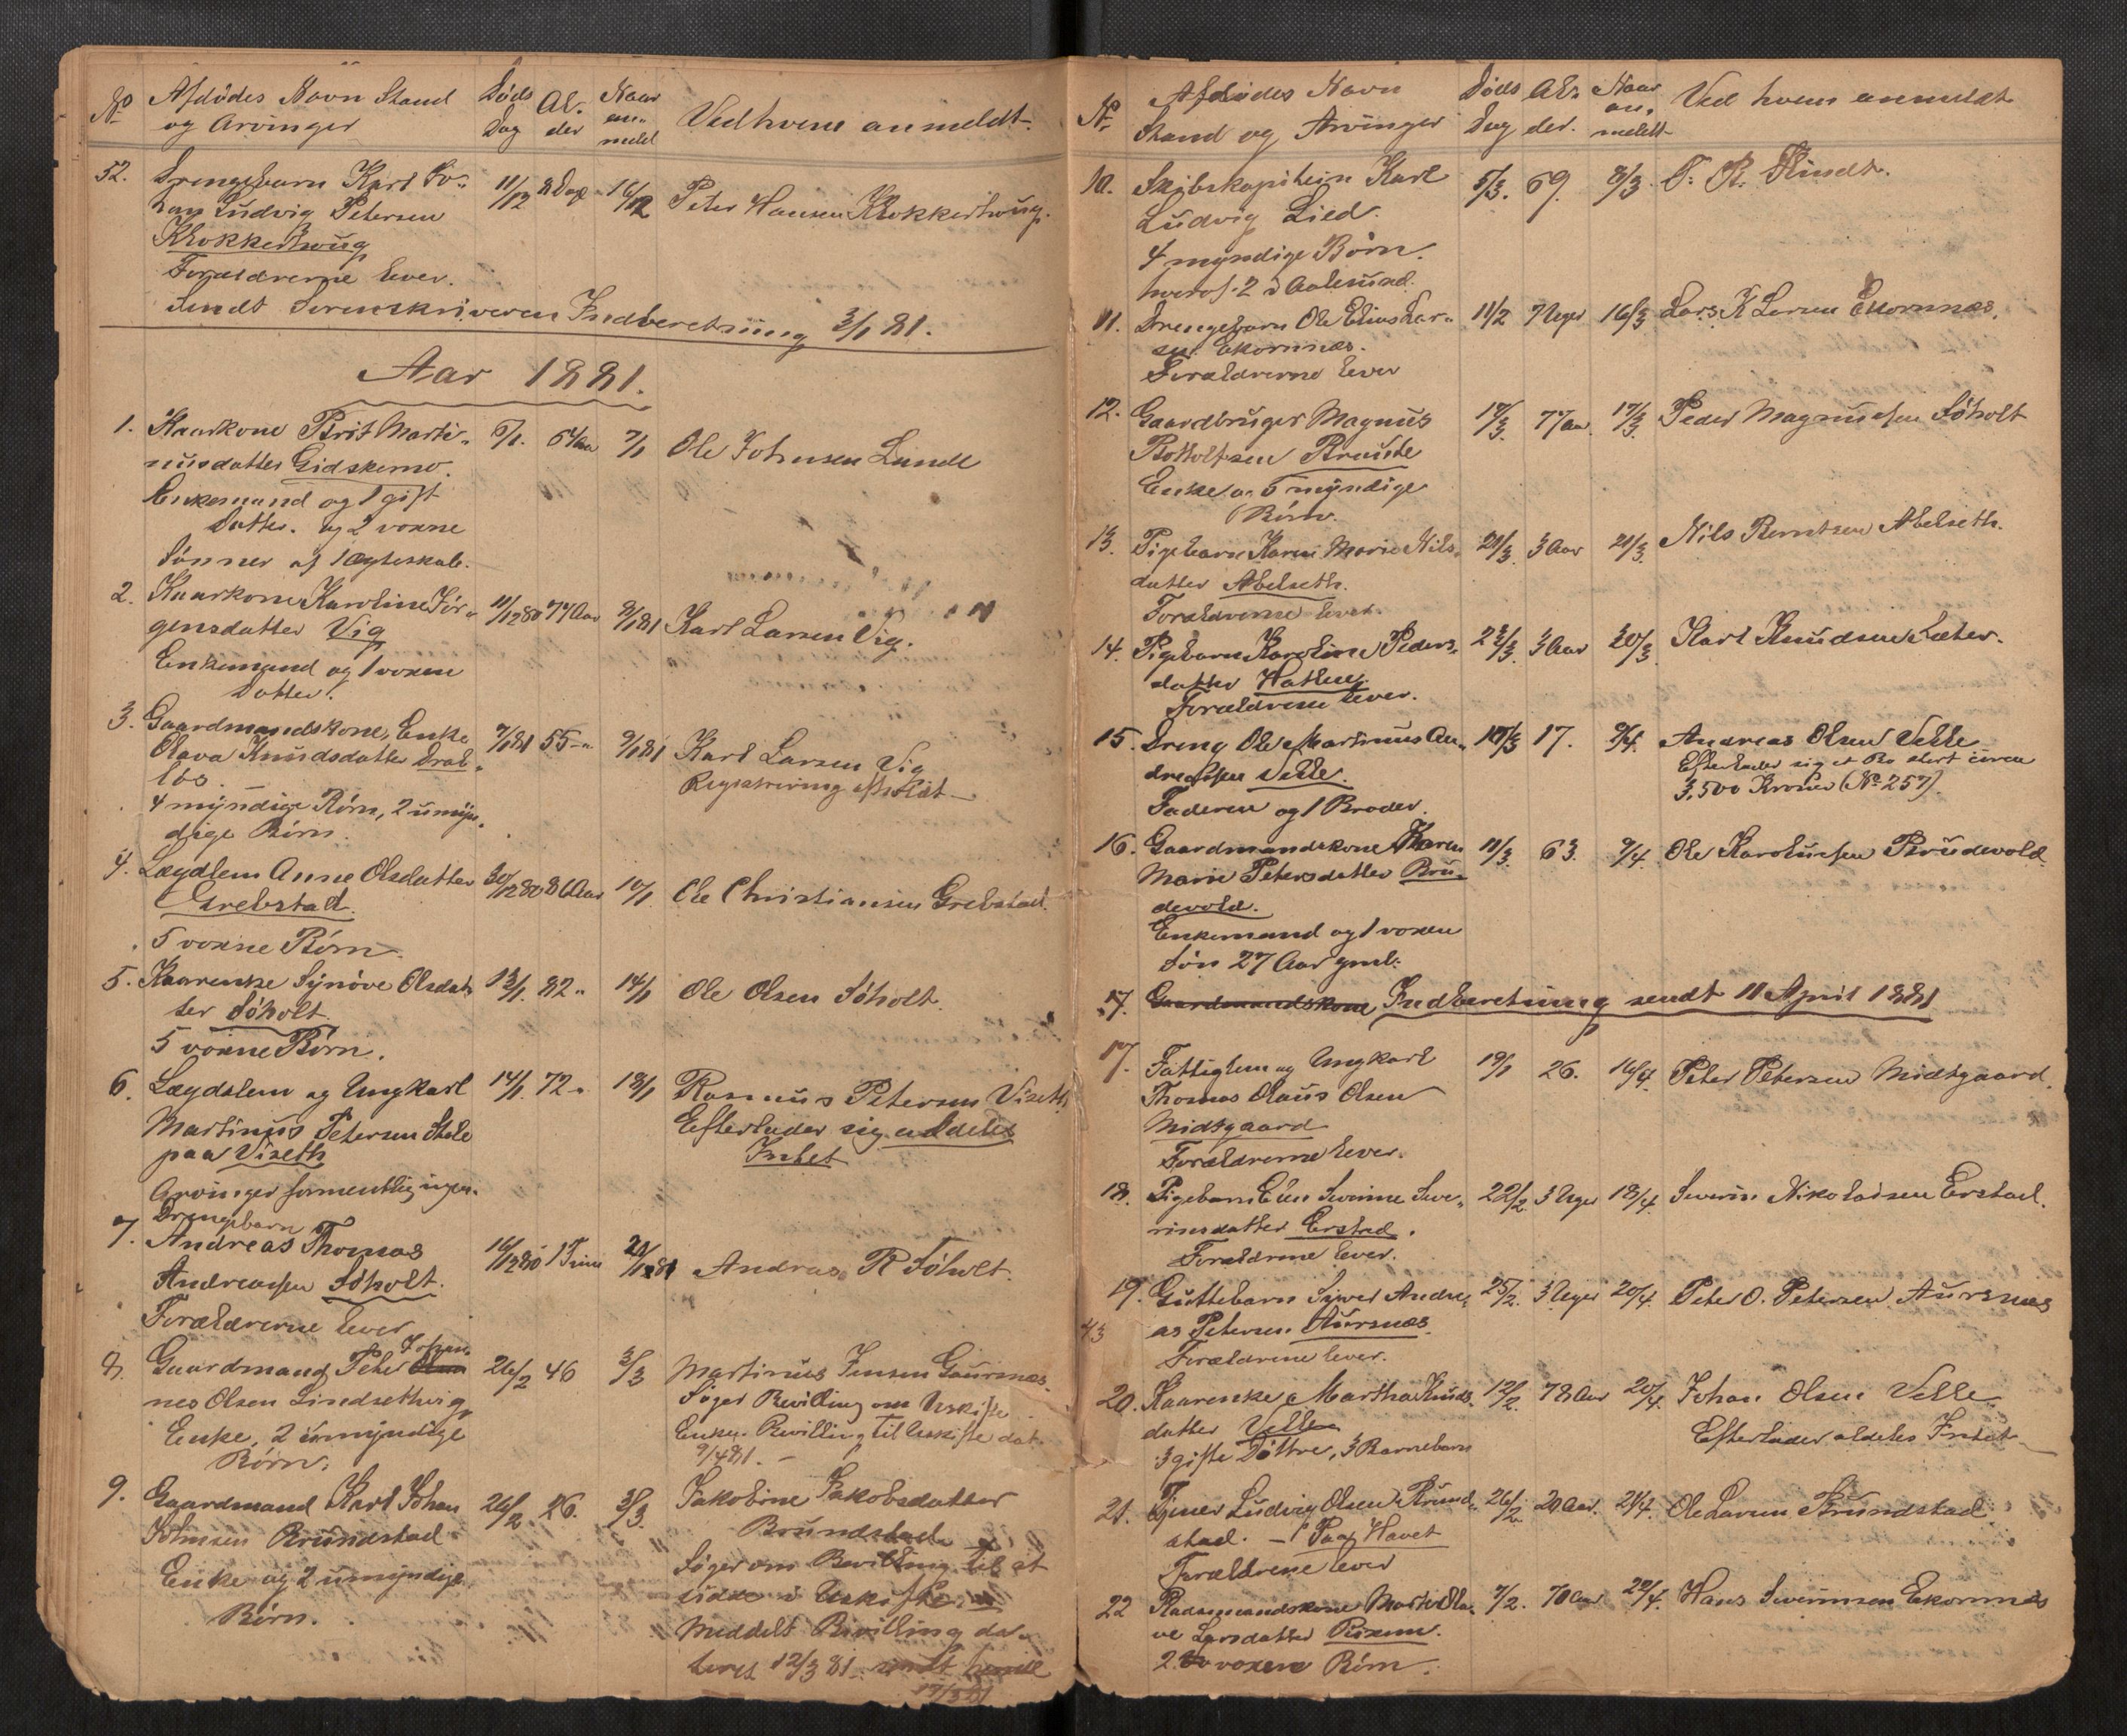 No
Afdödes Navn Stand
og Arvinger
Döds
Dag
Al-
der
Naar
an-
meldt
Ved hvem anmeldt.
52.
Drengebarn Karl Jo-
han Ludvig Petersen
Klokkerhoug
Forældrerne lever.
11/12
8 Dage
16/12
Peter Hansen Klokkerhoug.
Sendt Sorenskriveren Indberetning 3/1 81.
Aar 1881.
1.
Kaarkone Brit Marti-
nusdatter Gidskemo.
Enkemand og 1 gift
Datter. og 2 voxne
Sönner af 1 Ægteskab.
5/1.
64 Aar
7/1
Ole Johnsen Lunde
2.
Kaarkone Karoline Jör-
gensdatter Vig
Enkemand og 1 voxen
Datter.
11/12 80
74 Aar
9/1 81
Karl Larsen Vig.
3.
Gaardmandskone, Enke
Olava Knudsdatter Drab-
lös.
4 myndige Börn, 2 umyn-
dige Börn.
7/1 81
55 -"
9/1 81
Karl Larsen Vig
Registrering afholdt
4.
Lægdlem Anne Olsdatter
Grebstad.
5 voxne Börn.
30/12 80
86 Aar
10/1
Ole Christiansen Grebstad.
5.
Kaarenke Synöve Olsdat-
ter Söholt.
5 voxne Börn.
13/1.
82 "
14/1
Ole Olsen Söholt.
6.
Lægdslem og Ungkarl
Martinus Petersen Stole
paa Viseth
Arvinger formentlig ingen.
14/1.
72 "
18/1
Rasmus Petersen Viseth
Efterlader sig aldeles
Intet
7.
Drengebarn
Andreas Thomas
Andreassen Söholt.
Forældrerne lever
16/12 80
1 Time
21/1 81
Andreas R Söholt.
8.
Gaardmand Peter Johan-
nes Olsen Lindsethvig
Enke, 2 umyndige
Börn.
26/2
46
3/3
Martinus Jensen Gaursnæs.
Söger Bevilling om Uskifte
Enken Bevilling til Uskifte dat.
9/4 81. -
9.
Gaardmand Karl Johan
Johnsen Brundstad
Enke og 2 umyndige
Börn.
26/2.
26.
3/3.
Jakobine Jakobsdatter
Brundstad
Söger om Bevilling til at
sidde i Uskifte.
Meddelt Bevilling da-
teret 12/3 81 sendt hende
17/3 81
No
Afdödes Navn
Stand og Arvinger
Döds
Dag
Al-
der.
Naar
an-
meldt
Ved hvem anmeldt.
10.
Skibskapitein Karl
Ludvig Lied.
4 myndige Börn.
hvoraf 2 i Aalesund.
5/3.
69.
8/3
O. R. Klindt.
11.
Drengebarn Ole Elias Lar-
sen Ekornnæs.
Forældrerne lever
11/2
7 Uger
16/3
Lars K Larsen Ekornnæs.
12.
Gaardbruger Magnus
Botholfsen Brauste
Enke og 5 myndige
Börn.
17/3.
77 Aar.
17/3.
Peder Magnussen Söholt
13.
Pigebarn Karen Marie Nils-
datter Abelseth.
Forældrerne lever.
20/3.
3 Aar
21/3.
Nils Berntsen Abelseth.
14.
Pigebarn Karoline Peders-
datter Hatlen.
Forældrene lever.
23/3.
3 Aar
30/3
Karl Knudsen Sæter.
15.
Dreng Ole Martinus An-
dreassen Velle.
Faderen og 1 Broder.
10/3
17.
9/4.
Andreas Olsen Velle
Efterlader sig et Bo stort circa
3,500 Kroner (No 257).
16.
Gaardmandskone Karen
Marie Petersdatter Bru-
devold.
Enkemand og 1 voxen
Sön 27 Aar gml.
11/3.
63.
9/4.
Ole Karolussen Brudevold
17.
Gaardmandskone Indberetning sendt 11 April 1881
17.
Fattiglem og Ungkarl
Thomas Olaus Olsen
Midtgaard
Forældrerne lever.
19/1
26.
16/4.
Peter Petersen Midtgaard.
18.
Pigebarn Elen Severine Seve-
rinsdatter Erstad.
Forældrene lever.
22/2.
3 Uger
18/4.
Severin Nikolaisen Erstad.
19.
Guttebarn Siver Andre-
as Petersen Aursnæs.
Forældrene lever.
25/2.
3 Uger
20/4.
Peter O. Petersen Aursnæs
43
20.
Kaarenke Martha Knuds-
datter Velle
3 gifte Döttre, 3 Barnebarn
12/2.
78 Aar
20/4.
Johan Olsen Velle
Efterlader aldeles Intet
21.
Tjener Ludvig Olsen Strand-
stad. - Paa Havet
Forældrene lever
26/2.
20 Aar.
21/4.
Ole Larsen Strandstad.
22
Pladsmandskone Marte Ola-
ve Larsdatter
2 voxne Börn.
7/2.
70 Aar
22/4.
Hans Severinsen Ekornnæs